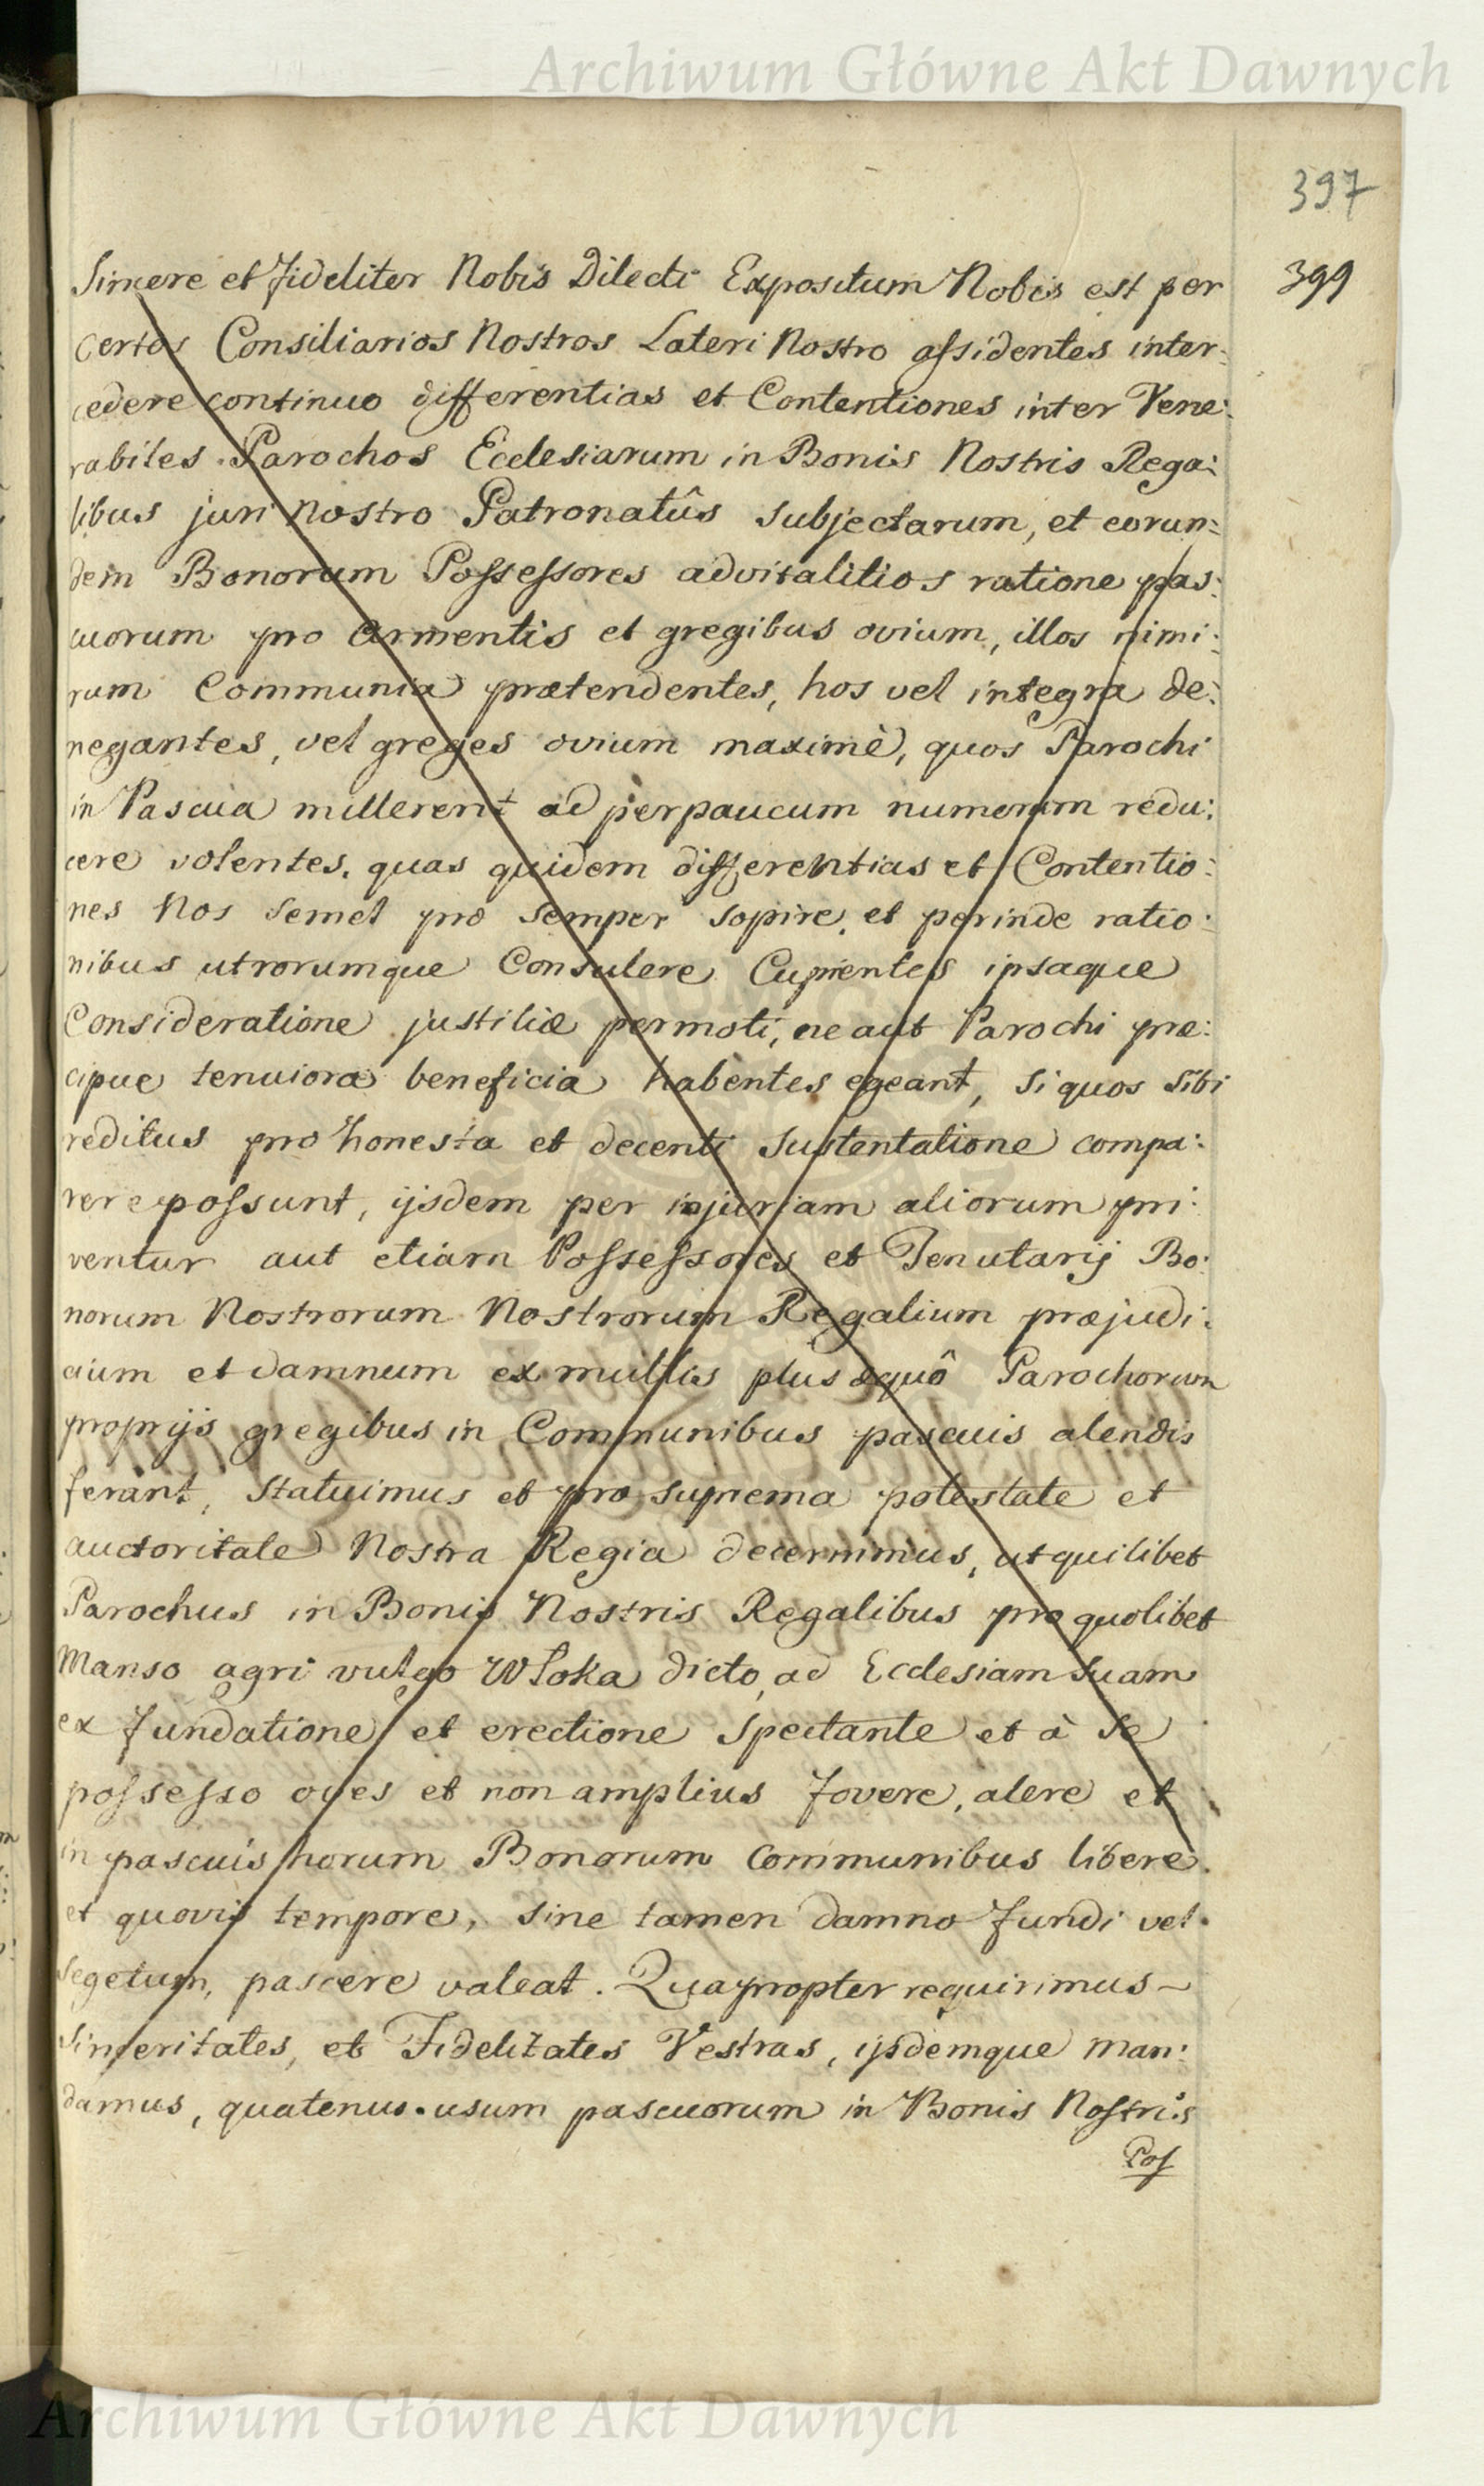 Archiwum Główne Akt Dawnych
397
399
Sincere et fideliter Nobis Dilecti Expositum Nobis est per
certos Consiliarios Nostros Lateri Nostro assidentes inter:
cedere continuo differentias et Contentiones inter Vene:
rabiles Parochos Ecclesiarum in Bonis Nostris Rega:
libus juri nostro Patronatûs subjectarum, et eorun:
dem Bonorum Possessores advitalitios ratione pas:
cuorum pro armentis et gregibus ovium, illos nimi:
rum Communia prætendentes, hos vel integra de:
negantes, vel greges ovium maximè, quos Parochi
in Pascua mitterent ad perpaucum numerum redu:
cere volentes. quas quidem differentias et Contentio:
nes Nos semel pro semper sopire, et perinde ratio:
nibus utrorumque Consulere Cupientes ipsaque
Consideratione justitiæ permoti, ne aut Parochi præ:
cipue tenuiora beneficia habentes egeant, si quos sibi
reditus pro honesta et decenti sustentatione compa:
rere possunt, ijsdem per injuriam aliorum pri:
ventur aut etiam Possessores et Tenutarij Bo:
norum Nostrorum Nostrorum Regalium præjudi:
cium et damnum ex multis plus æquô Parochorum
proprijs gregibus in Communibus pascuis alendis
ferant, Statuimus et pro suprema potestate et
auctoritate Nostra Regia decernimus, ut quilibet
Parochus in Bonis Nostris Regalibus pro quolibet
Manso agri vulgo Włoka dicto, ad Ecclesiam suam
ex fundatione et erectione Spectante et à se
possesso oves et non amplius fovere, alere et
in pascuis horum Bonorum communibus liberè
et quovis tempore, sine tamen damno fundi vel
segetum, pascere valeat. Quapropter requirimus
Sinceritates, et Fidelitates Vestras, ijsdemque man:
damus, quatenus usum pascuorum in Bonis Nostris
Pos
Archiwum Główne Akt Dawnych